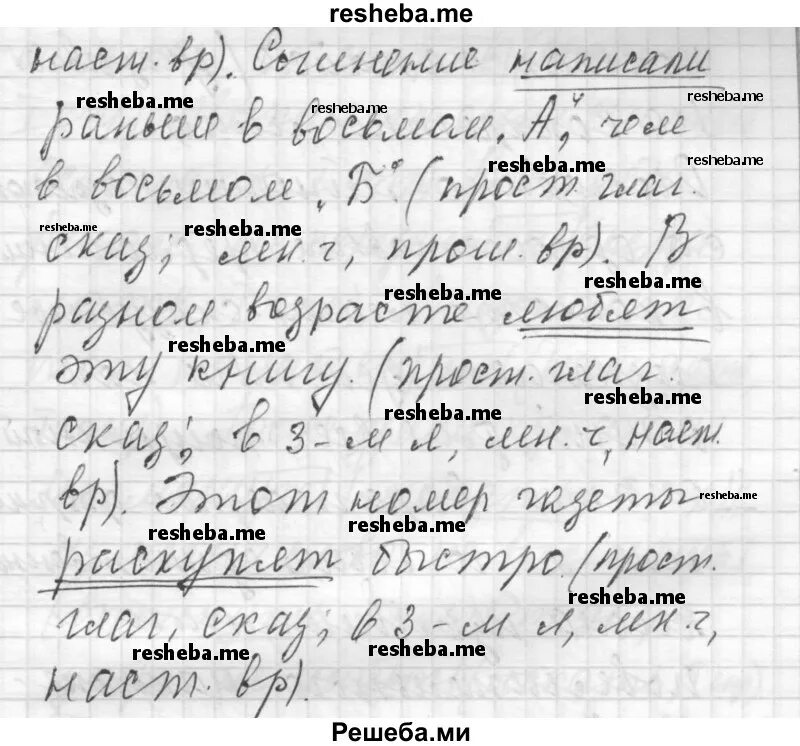 resheba.me
наст. вр). Сочинение написали
resheba.me resheba.me resheba.me
раньше в восьмом „А“, чем
resheba.me resheba.me
в восьмом „Б“ (прост. глаг.
resheba.me resheba.me
сказ; мн. ч, прош. вр). В
resheba.me resheba.me
разном возрасте любят
resheba.me
эту книгу. (прост. глаг.
resheba.me resheba.me
сказ; в 3-м л, мн. ч, наст.
вр). Этот номер газеты resheba.me
resheba.me resheba.me
раскупят быстро. (прост.
resheba.me
глаг, сказ; в 3-м л, мн. ч,
resheba.me resheba.me
наст. вр).
Решеба.ми